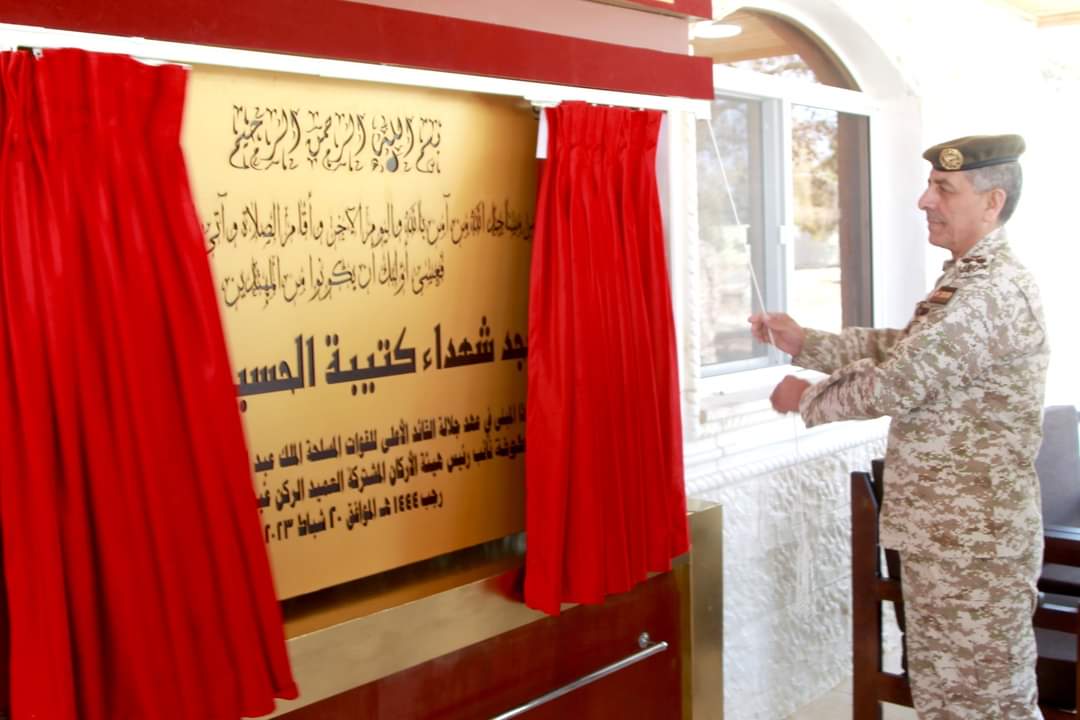 بسم الله الرحمن الرحيم
مساجد الله من آمن بالله واليوم الآخر وأقام الصلاة وآتى
فعسى أولئك ان يكونوا من المهتدين
جد شهداء كتيبة الحسيـ
المبنى في عهد جلالة القائد الأعلى للقوات المسلحة الملك عبد
نائب رئيس هيئة الأركان المشتركة العميد الركن
رجب ١٤٤٤ هـ الموافق ٢٠ شباط ٢٠٢٣